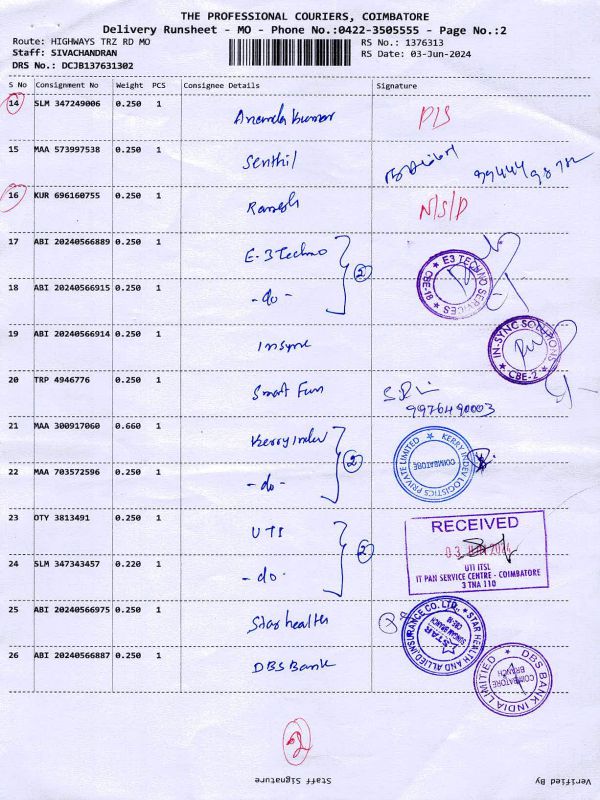 THE PROFESSIONAL COURIERS, COIMBATORE
Delivery Runsheet - MO - Phone No.:0422-3505555 - Page No.:2
Route: HIGHWAYS TRZ RD MO
RS No.: 1376313
Staff: SIVACHANDRAN
RS Date: 03-Jun-2024
DRS No.: DCJB137631302
S No Consignment No Weight PCS Consignee Details Signature
14 SLM 347249006 0.250 1 Ananda Kumar
15 MAA 573997538 0.250 1 Senthil
16 KUR 696160755 0.250 1 Ramesh N/S/P
17 ABI 20240566889 0.250 1 E-3 Techno
E3 TECHNO SERVICES ★ CBE-18 ★
2
18 ABI 20240566915 0.250 1 -do-
19 ABI 20240566914 0.250 1 Insync
IN-SYNC SOLUTIONS ★ CBE-2 ★
20 TRP 4946776 0.250 1 Smart Fun
9976490003
21 MAA 300917060 0.660 1 Kerry Indev
KERRY INDEV LOGISTICS PRIVATE LIMITED ★ COIMBATORE
2
22 MAA 703572596 0.250 1 -do-
23 OTY 3813491 0.250 1 UTI
RECEIVED
03 JUN 2024
UTI ITSL
IT PAN SERVICE CENTRE - COIMBATORE
3 TNA 110
2
24 SLM 347343457 0.220 1 -do-
25 ABI 20240566975 0.250 1 Star health
STAR HEALTH AND ALLIED INSURANCE CO. LTD. ★
STAR
26 ABI 20240566887 0.250 1 DBS Bank
DBS BANK INDIA LIMITED ★
COIMBATORE
BRANCH
Staff Signature
Verified By